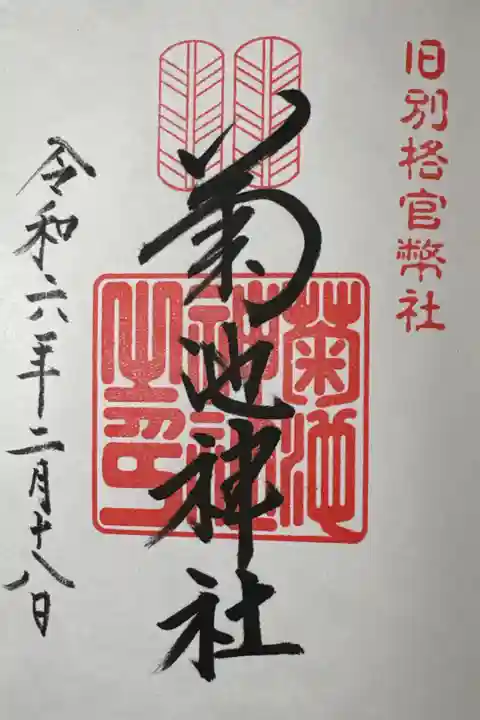 旧別格官幣社
菊池神社
菊池
神社
之印
令和六年二月十八日